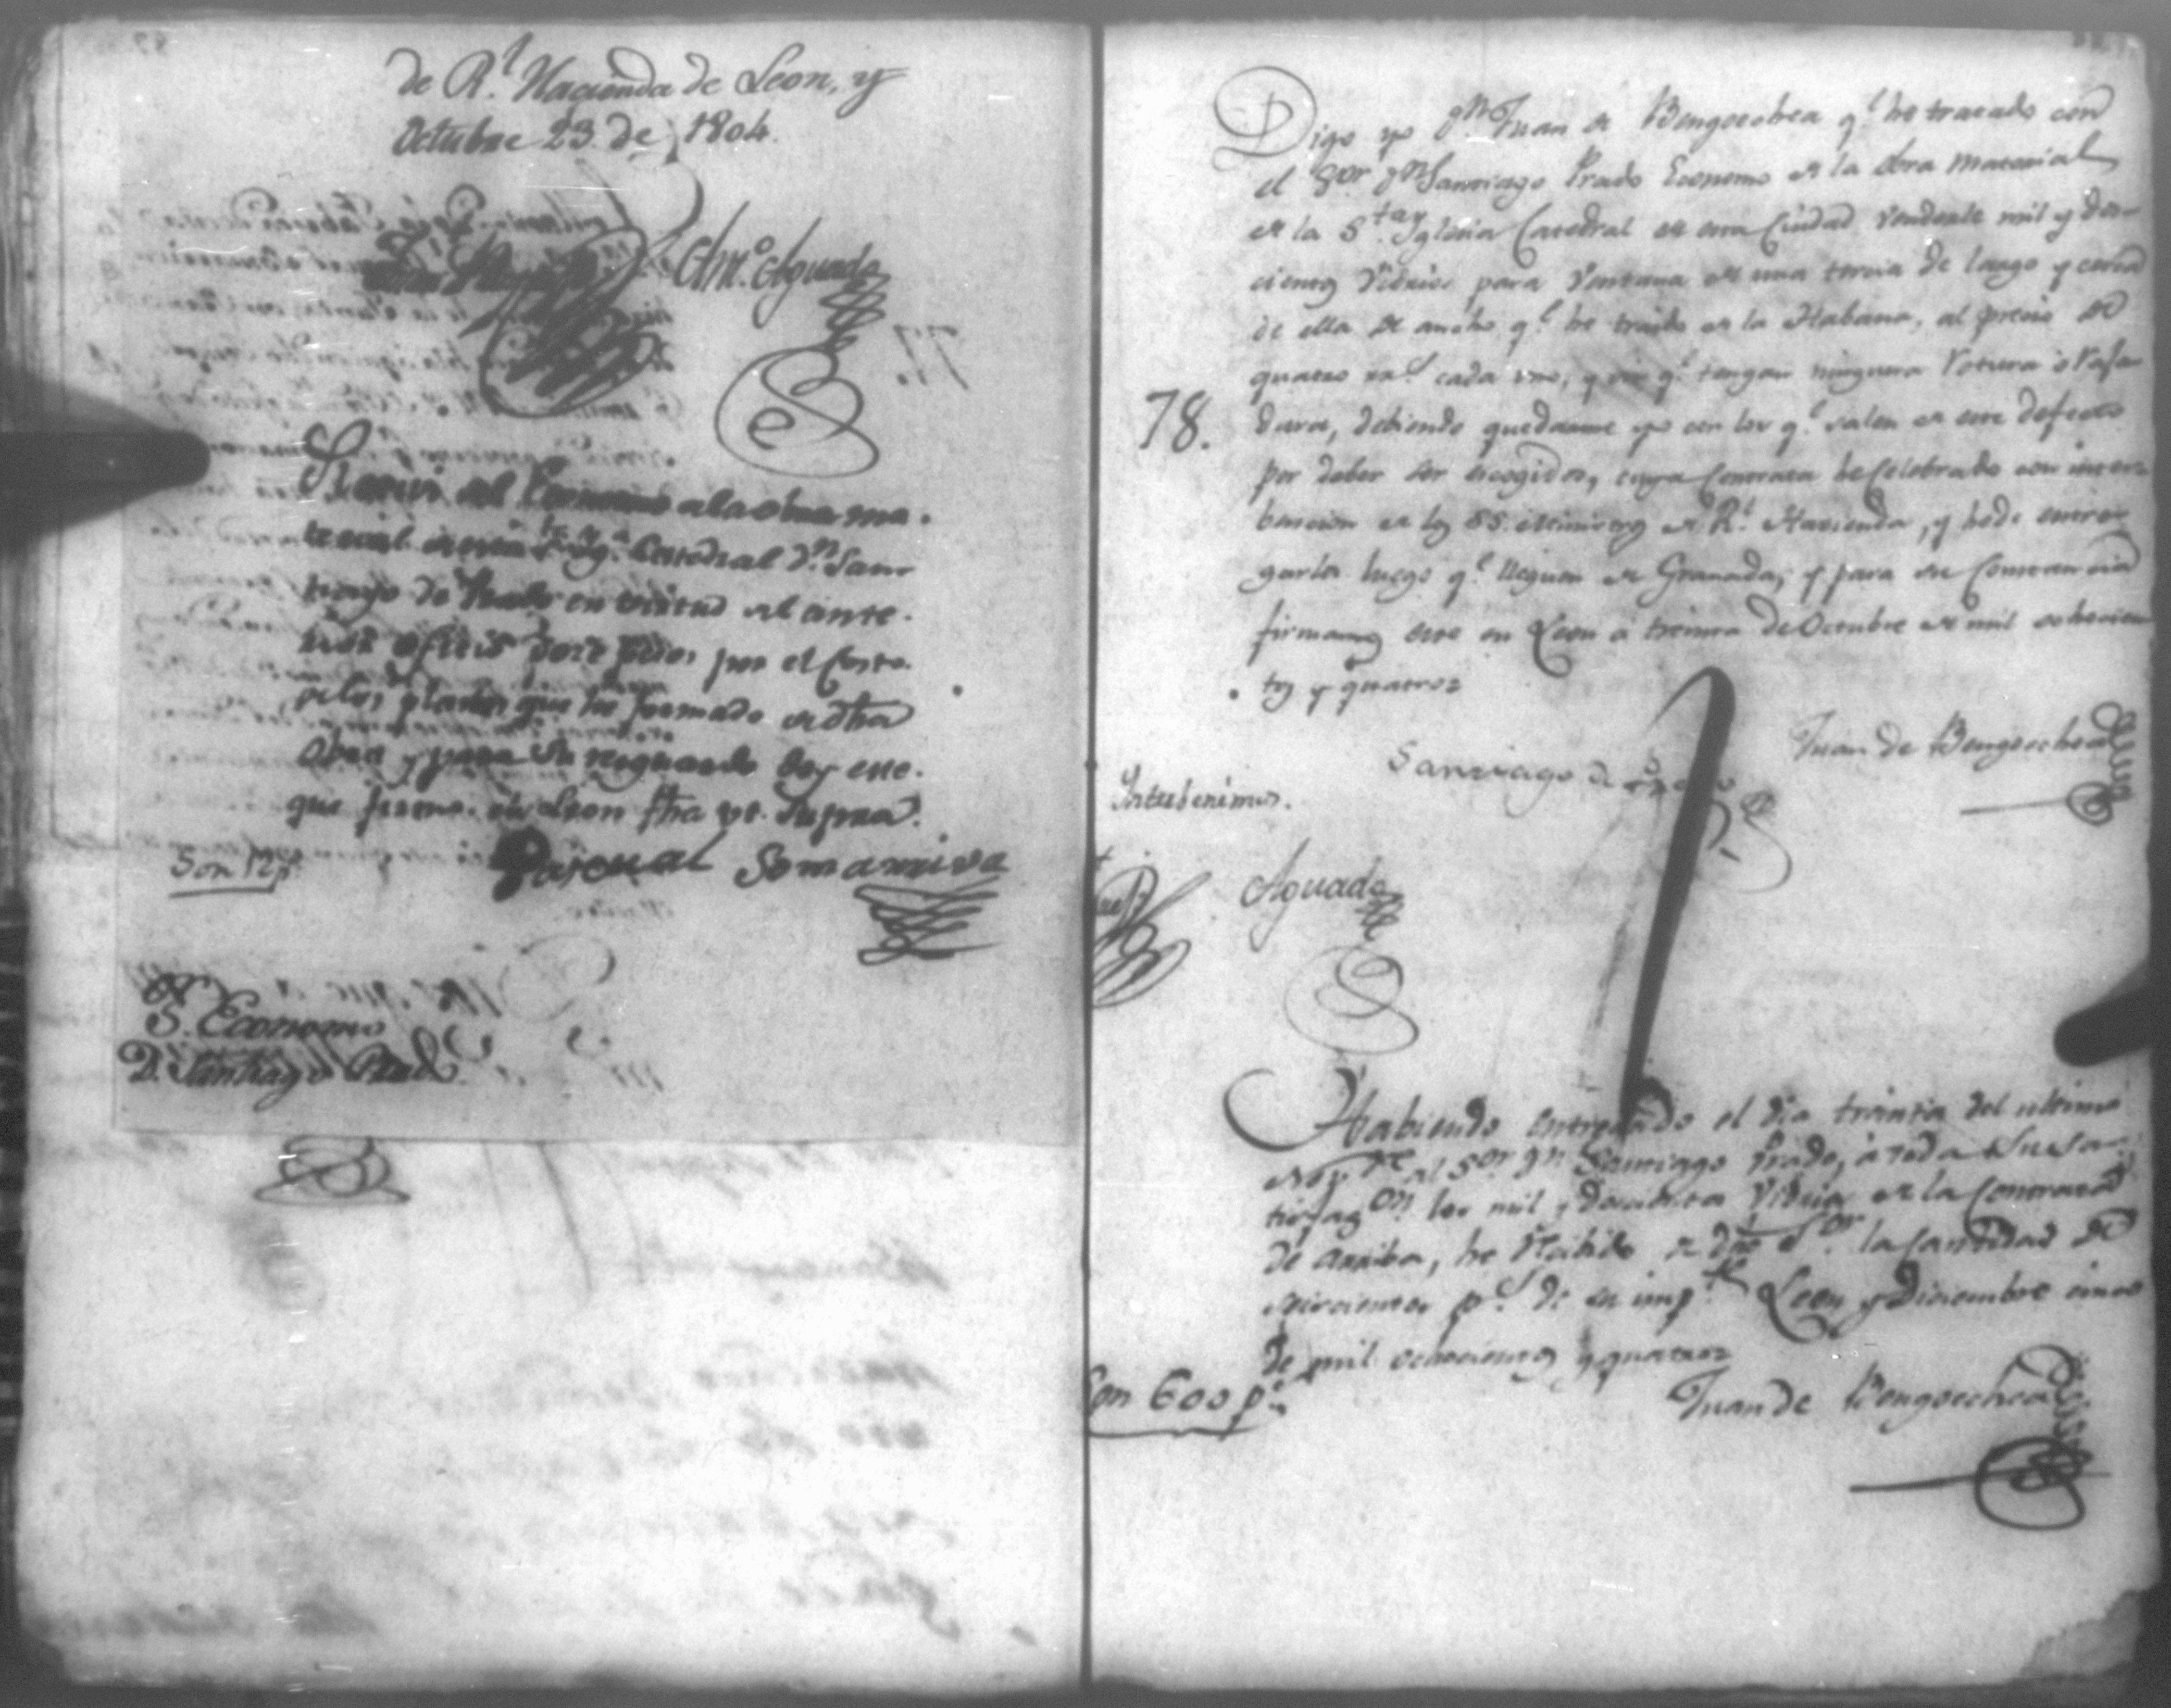 de Rl. Hacienda de Leon, y
Octubre 23. de 1804.
Anto. Aguado
Reciví del Economo de la obra ma-
terial de esta Sta. Yga. Catedral Dn. San-
tiago de Prado en virtud del ante-
rior oficio doze pesos por el Costo
de los planos que he formado de dha
Obra y para su resguardo doy este
que firmo en Leon fha ut. supra.
Son 12 ps.
Pasqual Somarriva
Sr. Economo
Dn. Santiago Prado
78.
Digo yo Dn. Juan de Bengoechea qe. he tratado con
el Sor. Dn. Santiago Prado Economo de la obra material
de la Sta. Yglesia Catedral de esta Ciudad venderle mil y dos-
cientos Vidrios para Ventana de una tercia de largo y
de ella de ancho qe. he traido de la Habana, al precio de
quatro rrs. cada uno, y sin qe. tengan ninguna rotura o rasa-
dura, debiendo quedarme yo con los qe. salen de este defecto
por deber ser escogidos, cuya Contrata he Celebrado con inter-
bencion de los SS. Ministros de Rl. Hacienda, y he de entre-
garlos luego qe. lleguen de Granada; y para su Constancia
firmamos este en Leon a treinta de Octubre de mil ochocien-
tos y quatro
Santiago de Prado
Juan de Bengoechea
Interbenimos.
Aguado
Habiendo entregado el dia treinta del ultimo
Nove. al Sor. Dn. Santiago Prado, à toda su sa-
tisfagon. los mil y doscientos Vidrios de la Contrata
de arriba, he recibido de dho Sor. la Cantidad de
seiscientos ps. de su impte. Leon y Diciembre cinco
de mil ochocientos y quatro
Son 600 ps.
Juan de Bengoechea